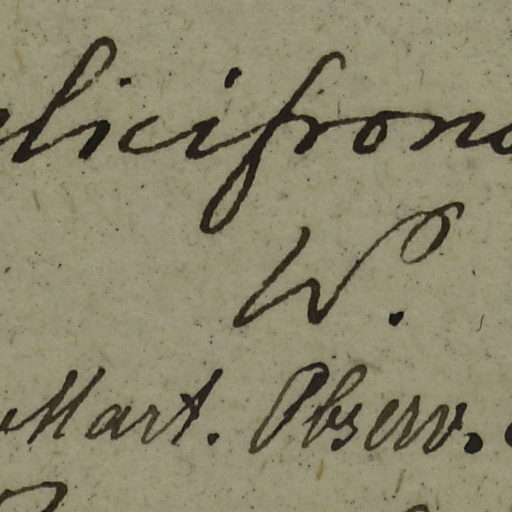 licifrons
W.
Mart. Observ.